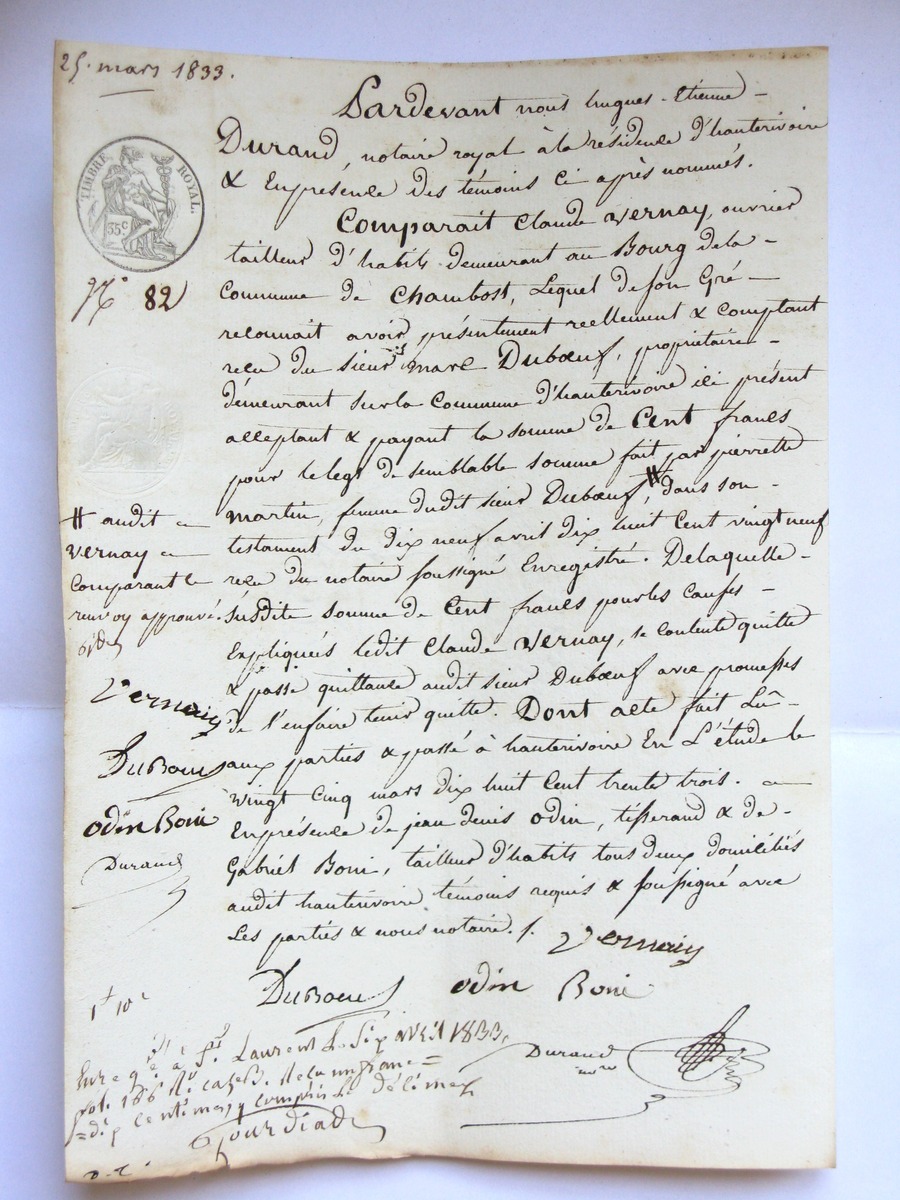 25. mars 1833.
TIMBRE ROYAL.
35c
No 82
Pardevant nous hugues-Etienne
Durand, notaire royal à la résidence d'hauterivoire
& En présence des témoins ci après nommés.
Comparait Claude Vernay, ouvrier
tailleur d'habits demeurant au Bourg de la
Commune de Chambost, Lequel de son Gré
reconnait avoir présentement reellement & comptant
reçu du sieur marc Duboeuf, propriétaire
demeurant sur la Commune d'hauterivoire ici présent
acceptant & payant la somme de Cent francs
pour le legt de semblable somme fait par pierrette
martin, femme dudit sieur Duboeuf, # dans son
testament du dix neuf avril dix huit Cent vingt neuf
reçu du notaire soussigné Enregistré. De laquelle
susdite somme de Cent francs pour les causes
Expliqueés ledit Claude Vernay, se contente quitte
& passe quittance audit sieur Duboeuf avec promesses
de l'en faire tenir quitte. Dont acte fait Lû
aux parties & passé à hauterivoire En L'étude le
vingt Cinq mars dix huit Cent trente trois.
En présence de jean denis Odin, tisserand & de
Gabriel Boni, tailleur d'habits tous deux domiciliés
audit hauterivoire témoins requis & soussigné avec
Les parties & nous notaire. /.
# audit
Vernay
Comparant le
renvoy approuvé.
Vernay
DuBoeuf
odin Boni
Durand
Vernay
DuBoeuf odin Boni
Durand
1f 10c
Enregé à St Laurent le Six avril 1833,
fol. 186 Ro. case 3. Reçu un franc
dix centimes y compris le décime